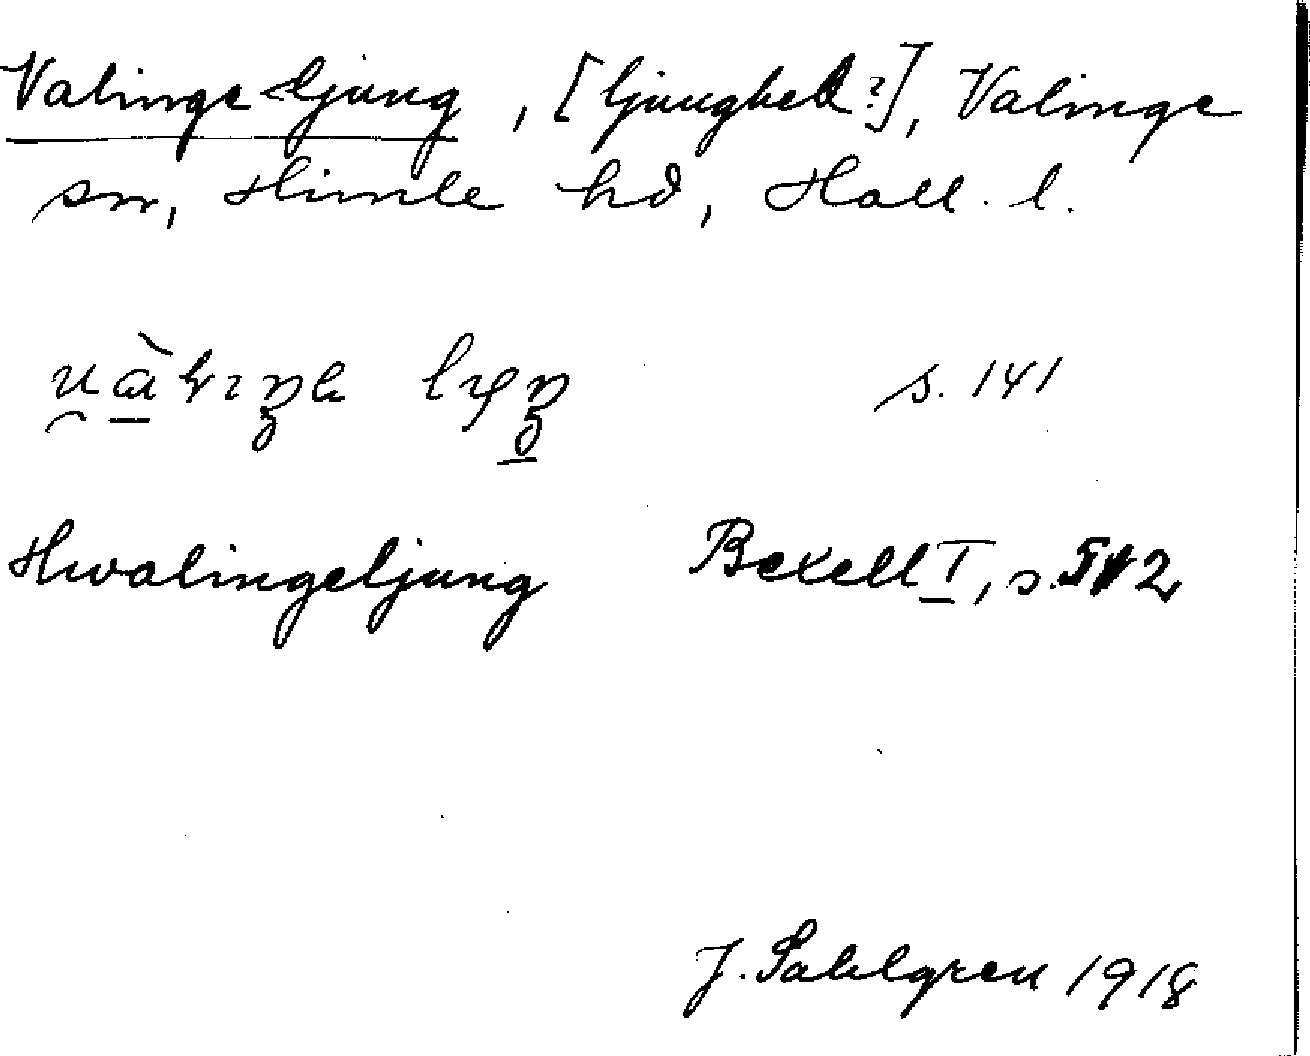 Valinge ljung, [ljunghed?], Valinge
sn, Himle hd, Hall. l.
s. 141
Hwalingeljung Bexell I, s. 512
J. Sahlgren 1918